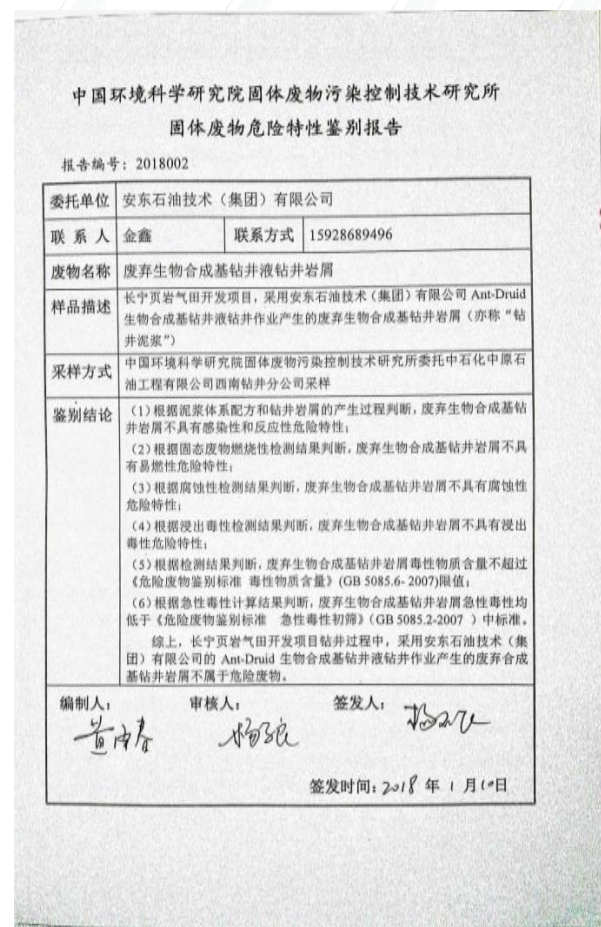 中国环境科学研究院固体废物污染控制技术研究所
固体废物危险特性鉴别报告
报告编号：2018002
委托单位 安东石油技术（集团）有限公司
联系人 金鑫 联系方式 15928689496
废物名称 废弃生物合成基钻井液钻井岩屑
样品描述 长宁页岩气田开发项目，采用安东石油技术（集团）有限公司 Ant-Druid
生物合成基钻井液钻井作业产生的废弃生物合成基钻井岩屑（亦称“钻
井泥浆”）
采样方式 中国环境科学研究院固体废物污染控制技术研究所委托中石化中原石
油工程有限公司西南钻井分公司采样
鉴别结论 （1）根据泥浆体系配方和钻井岩屑的产生过程判断，废弃生物合成基钻
井岩屑不具有感染性和反应性危险特性；
（2）根据固态废物燃烧性检测结果判断，废弃生物合成基钻井岩屑不具
有易燃性危险特性；
（3）根据腐蚀性检测结果判断，废弃生物合成基钻井岩屑不具有腐蚀性
危险特性；
（4）根据浸出毒性检测结果判断，废弃生物合成基钻井岩屑不具有浸出
毒性危险特性；
（5）根据检测结果判断，废弃生物合成基钻井岩屑毒性物质含量不超过
《危险废物鉴别标准 毒性物质含量》(GB 5085.6- 2007)限值；
（6）根据急性毒性计算结果判断，废弃生物合成基钻井岩屑急性毒性均
低于《危险废物鉴别标准 急性毒性初筛》（GB 5085.2-2007 ）中标准。
综上，长宁页岩气田开发项目钻井过程中，采用安东石油技术（集
团）有限公司的 Ant-Druid 生物合成基钻井液钻井作业产生的废弃合成
基钻井岩屑不属于危险废物。
编制人： 审核人： 签发人：
签发时间：2018 年 1 月10日